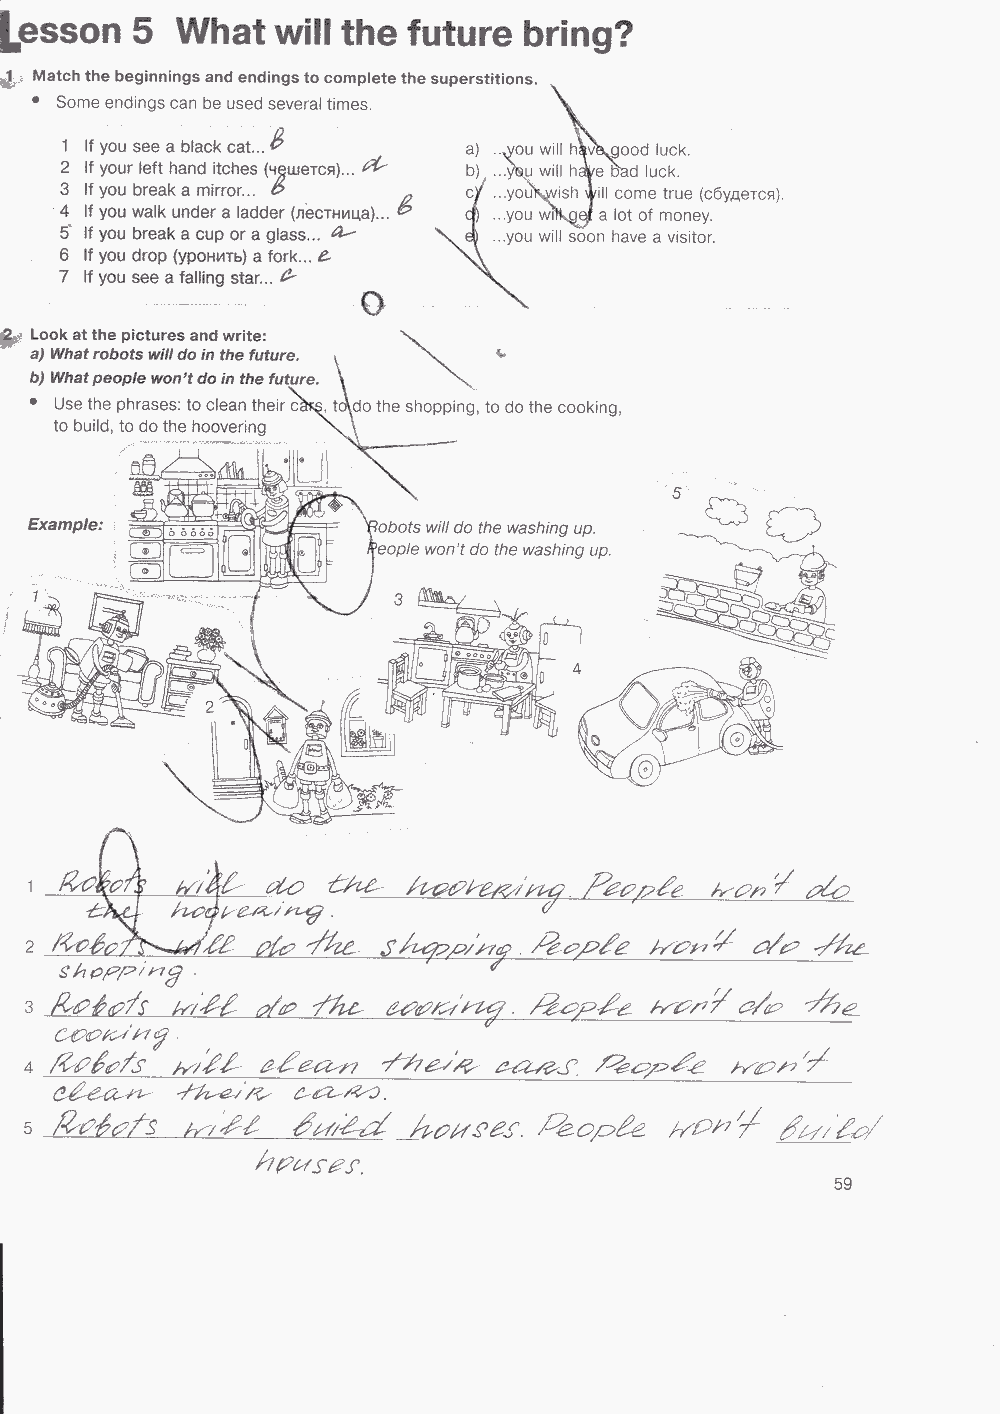 Lesson 5 What will the future bring?
1 Match the beginnings and endings to complete the superstitions.
• Some endings can be used several times.
1 If you see a black cat... b
2 If your left hand itches (чешется)... d
3 If you break a mirror... b
4 If you walk under a ladder (лестница)... b
5 If you break a cup or a glass... a
6 If you drop (уронить) a fork... e
7 If you see a falling star... c
a) ...you will have good luck.
b) ...you will have bad luck.
c) ...your wish will come true (сбудется).
d) ...you will get a lot of money.
e) ...you will soon have a visitor.
2 Look at the pictures and write:
a) What robots will do in the future.
b) What people won't do in the future.
• Use the phrases: to clean their cars, to do the shopping, to do the cooking,
to build, to do the hoovering
Example:
Robots will do the washing up.
People won't do the washing up.
1
2
3
4
5
1 Robots will do the hoovering. People won't do
the hoovering.
2 Robots will do the shopping. People won't do the
shopping.
3 Robots will do the cooking. People won't do the
cooking.
4 Robots will clean their cars. People won't
clean their cars.
5 Robots will build houses. People won't build
houses.
59